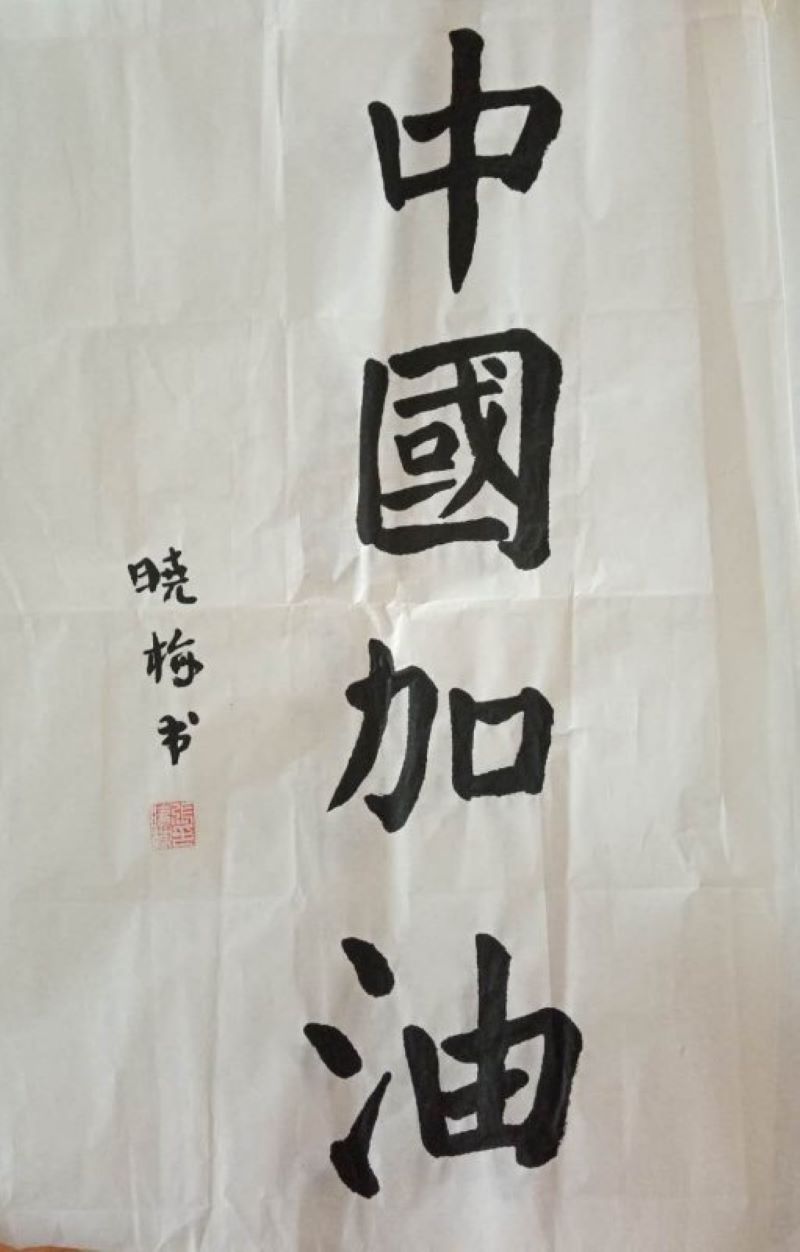 中國加油
晓梅书